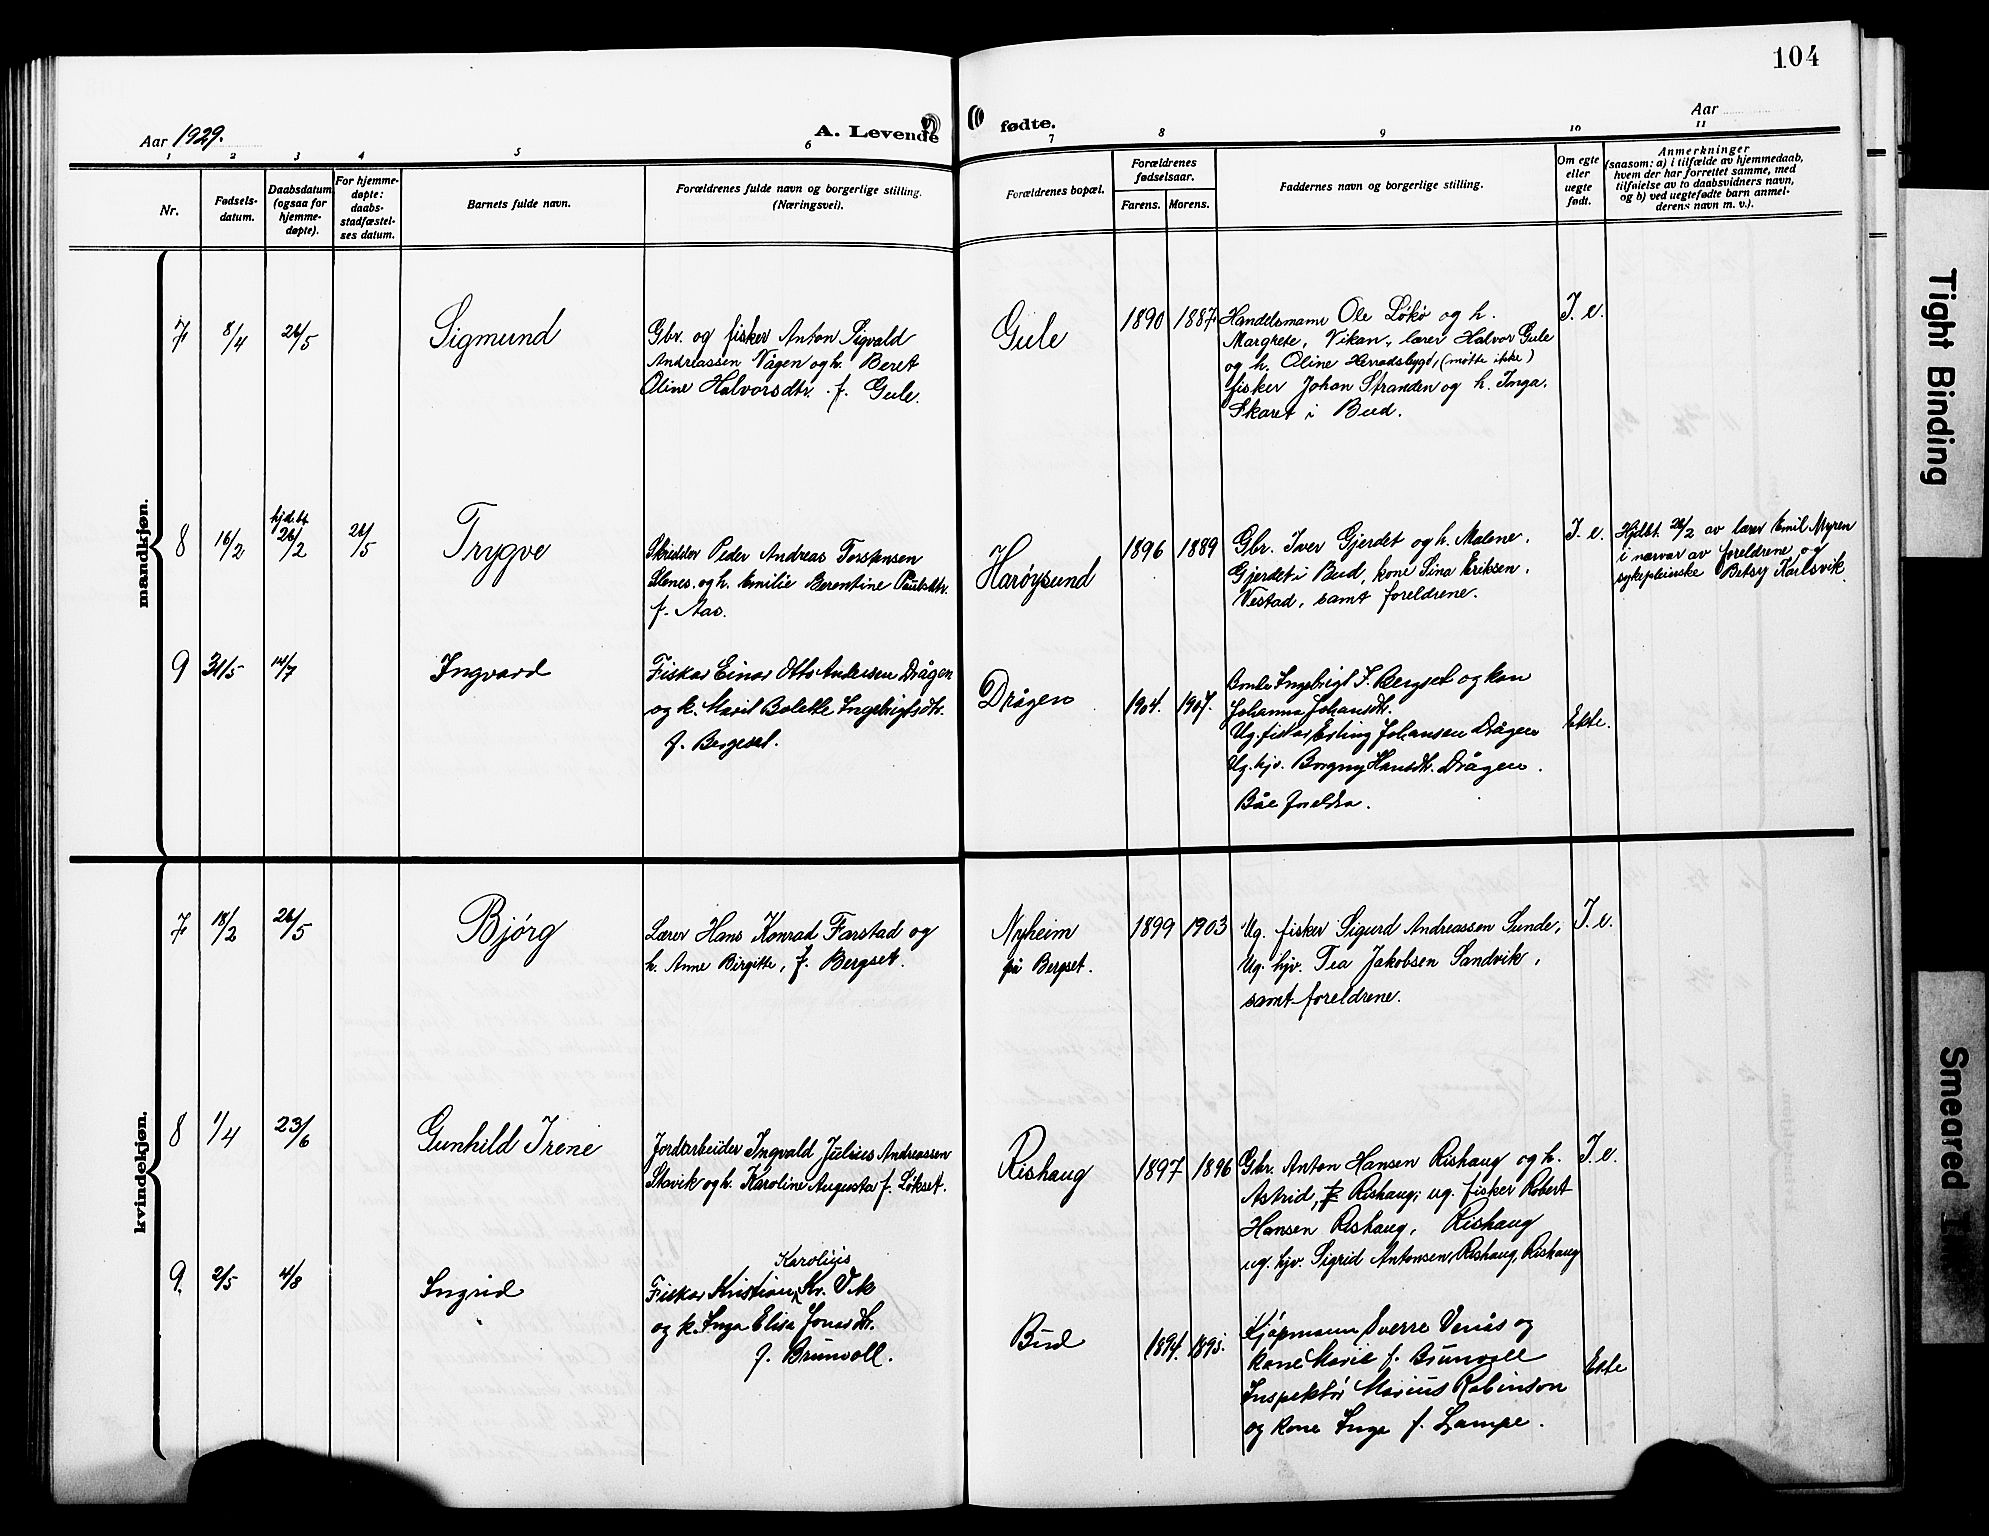 104
Aar 1929.
A. Levende fødte.
Aar
1 2 3 4 5 6 7 8 9 10 11
Nr.
Fødsels-
datum.
Daabsdatum
(ogsaa for
hjemme-
døpte).
For hjemme-
døpte:
daabs-
stadfæstel-
ses datum.
Barnets fulde navn.
Forældrenes fulde navn og borgerlige stilling.
(Næringsvei).
Forældrenes bopæl.
Forældrenes
fødselsaar.
Farens. Morens.
Faddernes navn og borgerlige stilling.
Om egte
eller
uegte
født.
Anmerkninger
(saasom: a) i tilfælde av hjemmedaab,
hvem der har forrettet samme, med
tilføielse av to daabsvidners navn,
og b) ved uegtefødte barn anmel-
derens navn m. v.).
mandkjøn.
7 8/4 26/5
Sigmund
Gbr. og fisker Anton Sigvald
Andreassen Vågen og h. Beret
Oline Halvorsdtr. f. Gule.
Gule
1890 1887
Handelsmann Ole Løkø og h.
Margrete, Vikan, lærer Halvor Gule
og h. Oline Herradsbygd, (møtte ikke)
fisker Johan Stranden og h. Inga.
Skaret i Bud.
I. e.
8 16/2 hjd. bt 26/2 26/5
Trygve
Skredder Peder Andreas Torstensen
Slenes. og h. Emilie Berentine Paulsdtr.
f. Aas.
Harøysund
1896 1889
Gbr. Iver Gjerdet og h. Malene.
Gjerdet i Bud, kone Sina Eriksen.
Vestad, samt foreldrene.
I. e.
Hjdbt. 26/2 av lærer Emil Myren
i nærvær av foreldrene og
sykepleierske Betsy Karlsvik.
9 31/5 14/7
Ingvard
Fiskar Einar Otto Andersen Drågen
og k. Marit Bolette Ingebrigtsdtr.
f. Bergset.
Drågen
1904. 1907.
Bonde Ingebrigt J. Bergset og kon
Johanna Johansdtr.
Ug. fiskar Erling Johansen Drågen
Ug. hjv. Borgny Hansdtr. Drågen.
Båe foreldra.
Ekte.
kvindekjøn.
7 18/2 26/5
Bjørg
Lærer Hans Konrad Farstad og
h. Anne Birgitte, f. Bergset.
Nyheim
på Bergset.
1899 1903
Ug. fisker Sigurd Andreassen Sunde,
Ug. hjv. Tea Jakobsen Sandvik,
samt foreldrene.
I. e.
8 1/4 23/6
Gunhild Irene
Jordarbeider Ingvald Julius Andreassen
Stavik og h. Karoline Augusta f. Løkset.
Rishaug
1897 1896
Gbr. Anton Hansen Rishaug og h.
Astrid, Rishaug; ug. fisker Robert
Hansen Rishaug, Rishaug
ug. hjv. Sigrid Antonsen, Rishaug, Rishaug
I. e.
9. 2/5 4/8
Ingrid
Karolius
Fiskar Kristian Kr. Vik
og k. Inga Elisa Jonasdtr.
f. Brunvoll.
Bud
1894. 1895.
Kjøpmann Sverre Venås og
kone Marit f. Brunvoll
Inspektør Marius Robinson
og kone Inga f. Lampe.
Ekte
Tight Binding
Smeared